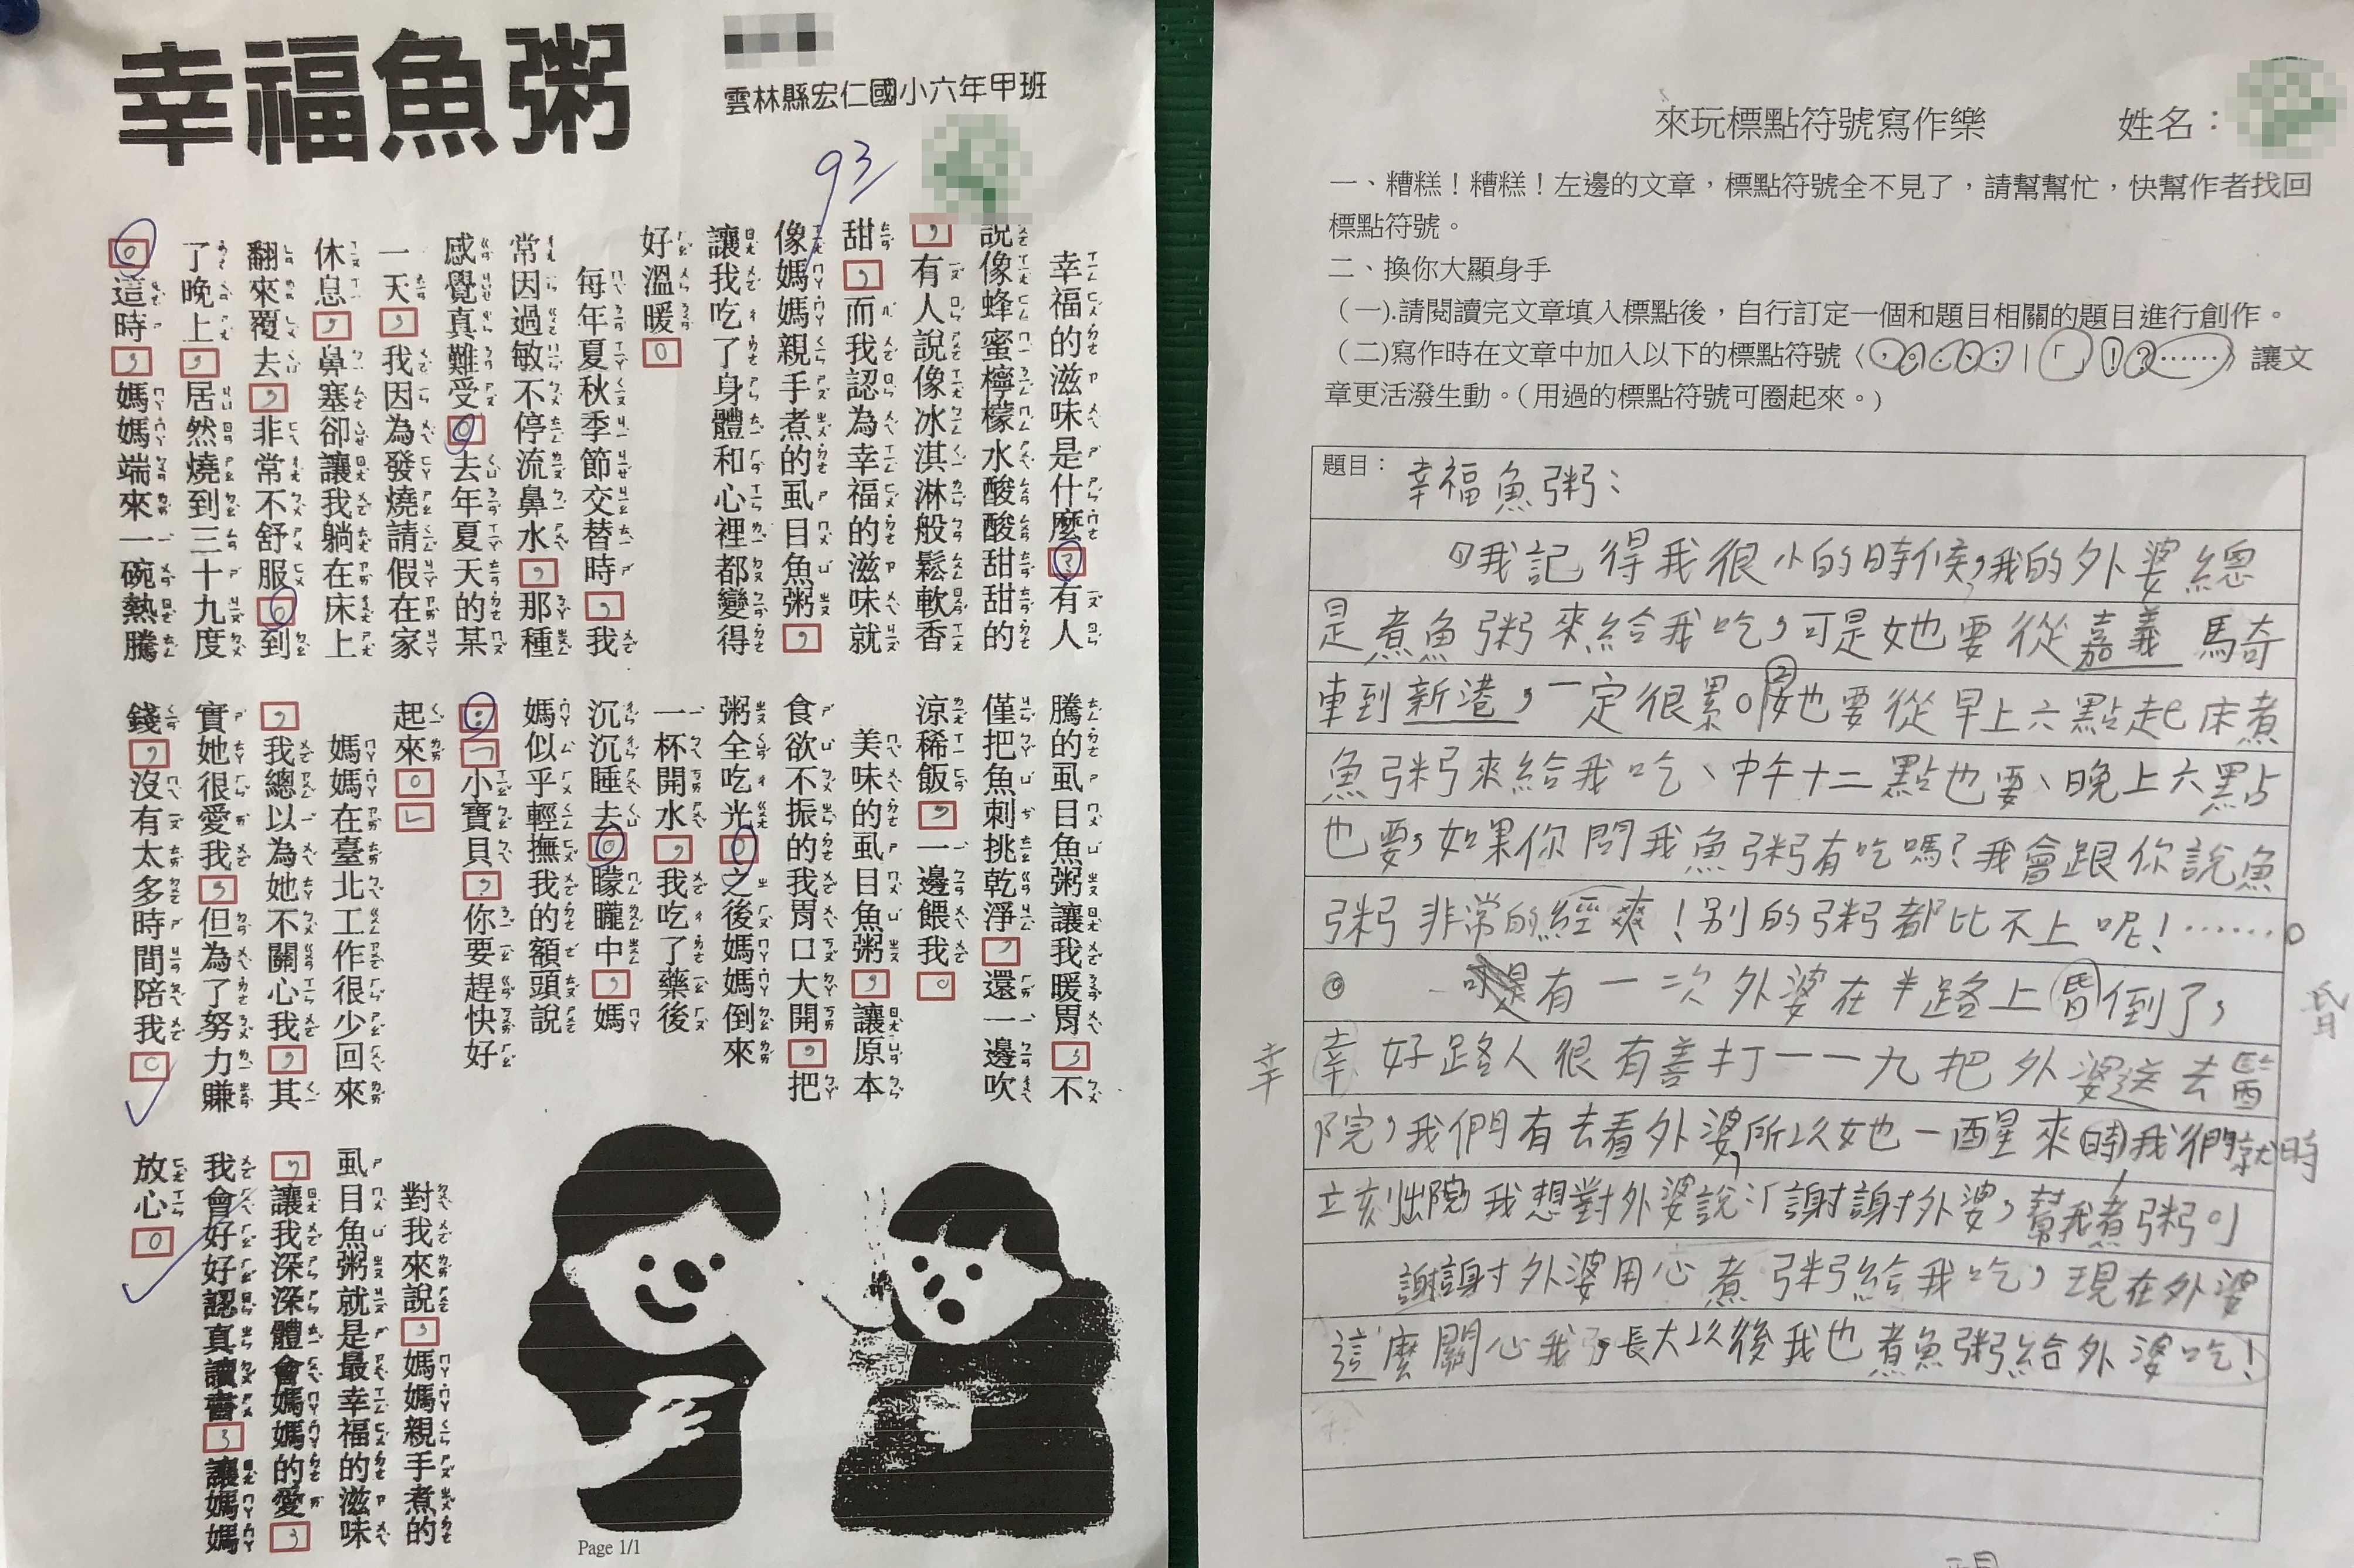 幸福魚粥
雲林縣宏仁國小六年甲班
93
幸福的滋味是什麼？有人
說像蜂蜜檸檬水酸酸甜甜的
，有人說像冰淇淋般鬆軟香
甜，而我認為幸福的滋味就
像媽媽親手煮的虱目魚粥，
讓我吃了身體和心裡都變得
好溫暖。
每年夏秋季節交替時，我
常因過敏不停流鼻水，那種
感覺真難受。去年夏天的某
一天，我因為發燒請假在家
休息，鼻塞卻讓我躺在床上
翻來覆去，非常不舒服。到
了晚上，居然燒到三十九度
。這時，媽媽端來一碗熱騰
騰的虱目魚粥讓我暖胃，不
僅把魚刺挑乾淨，還一邊吹
涼稀飯，一邊餵我。
美味的虱目魚粥，讓原本
食欲不振的我胃口大開，把
粥全吃光。之後媽媽倒來
一杯開水，我吃了藥後
沉沉睡去。矇矓中，媽
媽似乎輕撫我的額頭說
：「小寶貝，你要趕快好
起來。」
媽媽在臺北工作很少回來
，我總以為她不關心我，其
實她很愛我，但為了努力賺
錢，沒有太多時間陪我。
對我來說，媽媽親手煮的
虱目魚粥就是最幸福的滋味
，讓我深深體會媽媽的愛，
我會好好認真讀書，讓媽媽
放心。
Page 1/1
來玩標點符號寫作樂 姓名：
一、糟糕！糟糕！左邊的文章，標點符號全不見了，請幫幫忙，快幫作者找回
標點符號。
二、換你大顯身手
（一).請閱讀完文章填入標點後，自行訂定一個和題目相關的題目進行創作。
（二)寫作時在文章中加入以下的標點符號〈，。：、；｜「」！？……〉讓文
章更活潑生動。(用過的標點符號可圈起來。)
題目：幸福魚粥：
我記得我很小的時候，我的外婆總
是煮魚粥來給我吃，可是她要從嘉義騎
車到新港，一定很累。她也要從早上六點起床煮
魚粥來給我吃、中午十二點也要、晚上六點
也要，如果你問我魚粥有吃嗎？我會跟你說魚
粥非常的經爽！別的粥都比不上呢！……。
有一次外婆在半路上昏倒了， 昏
幸 幸好路人很有善打一一九把外婆送去醫
院，我們有去看外婆，所以她一醒來時，我們就 時
立刻出院，我想對外婆說：「謝謝外婆，幫我煮粥。」
謝謝外婆用心煮粥給我吃，現在外婆
這麼關心我，長大以後我也煮魚粥給外婆吃！